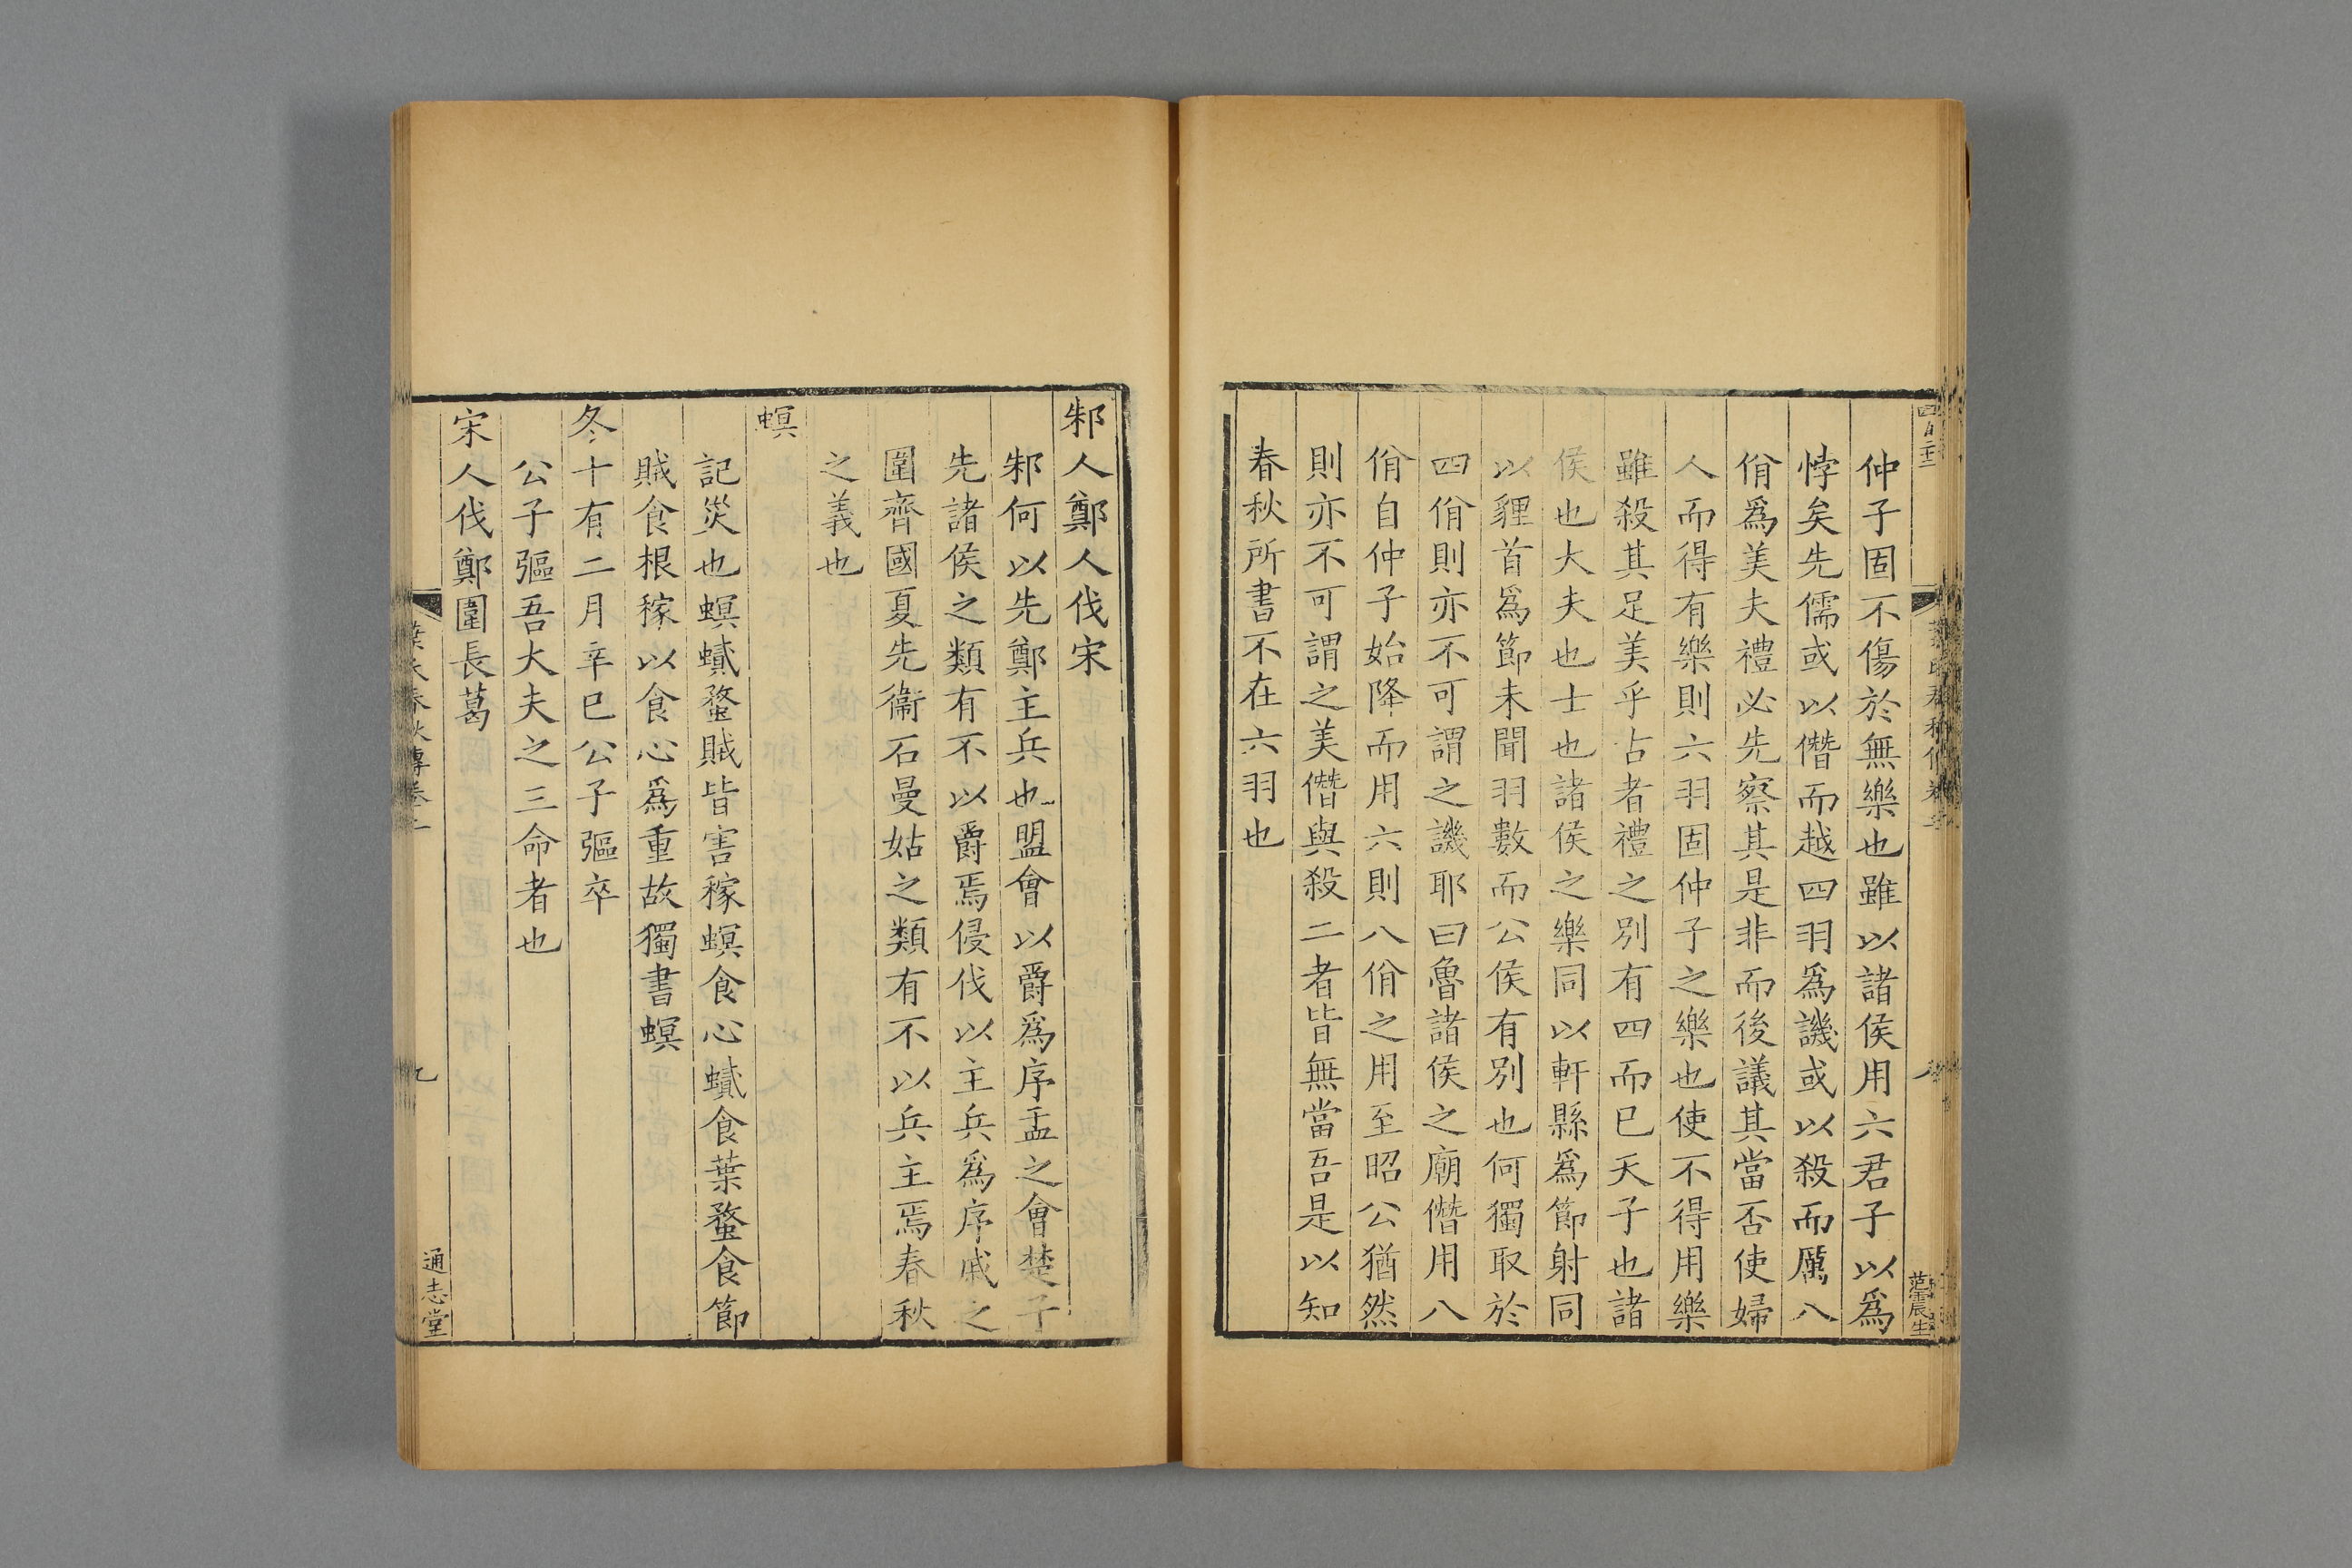 仲子固不傷於無樂也雖以諸侯用六君子以爲
悖矣先儒或以僭而越四羽爲譏或以殺而厲八
佾爲美夫禮必先察其是非而後議其當否使婦
人而得有樂則六羽固仲子之樂也使不得用樂
雖殺其足美乎古者禮之别有四而已天子也諸
侯也大夫也士也諸侯之樂同以軒縣爲節射同
以貍首爲節未聞羽數而公侯有别也何獨取於
四佾則亦不可謂之譏耶曰魯諸侯之廟僭用八
佾自仲子始降而用六則八佾之用至昭公猶然
則亦不可謂之美僭與殺二者皆無當吾是以知
春秋所書不在六羽也
邾人鄭人伐宋
邾何以先鄭主兵也盟會以爵爲序盂之會楚子
先諸侯之類有不以爵焉侵伐以主兵爲序戚之
圍齊國夏先衞石曼姑之類有不以兵主焉春秋
之義也
螟
記災也螟蟘蝥賊皆害稼螟食心蟘食葉蝥食節
賊食根稼以食心爲重故獨書螟
冬十有二月辛巳公子彄卒
公子彄吾大夫之三命者也
宋人伐鄭圍長葛
葉氏春秋傳卷二
九
通志堂